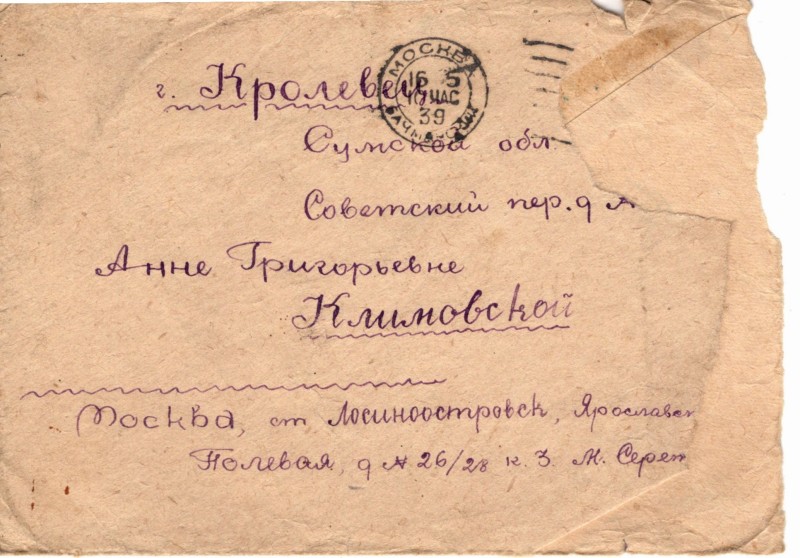 г. Кролевец
МОСКВА
16 5
10 ЧАС
39
Сумской обл.
Советский пер. д №
Анне Григорьевне
Климовской
Москва, ст Лосиноостровск, Ярославск
Полевая, д № 26/28 к. 3. М. Серет